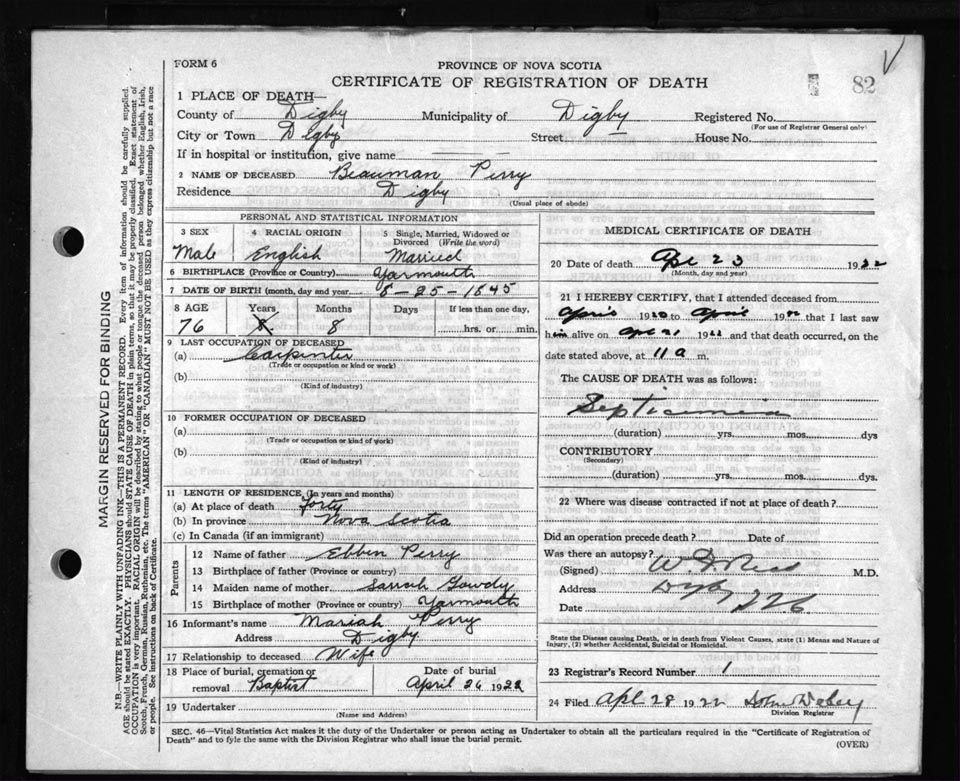 FORM 6
82
PROVINCE OF NOVA SCOTIA
CERTIFICATE OF REGISTRATION OF DEATH
1 PLACE OF DEATH—
County of Digby Municipality of Digby Registered No.
(For use of Registrar General only)
City or Town Digby Street House No.
If in hospital or institution, give name
2 NAME OF DECEASED Beauman Perry
Residence Digby
(Usual place of abode)
PERSONAL AND STATISTICAL INFORMATION
3 SEX 4 RACIAL ORIGIN 5 Single, Married, Widowed or Divorced (Write the word)
Male English Married
6 BIRTHPLACE (Province or Country) Yarmouth
7 DATE OF BIRTH (month, day and year) 8-25-1845
8 AGE Years Months Days If less than one day,
76 8 hrs. or min.
9 LAST OCCUPATION OF DECEASED
(a) Carpinter
(Trade or occupation or kind or work)
(b)
(Kind of industry)
10 FORMER OCCUPATION OF DECEASED
(a)
(Trade or occupation or kind of work)
(b)
(Kind of industry)
11 LENGTH OF RESIDENCE (In years and months)
(a) At place of death forty
(b) In province Nova Scotia
(c) In Canada (if an immigrant)
Parents
12 Name of father Ebbin Perry
13 Birthplace of father (Province or country)
14 Maiden name of mother Sarrah Gowdy
15 Birthplace of mother (Province or country) Yarmouth
16 Informant's name Mariah Perry
Address Digby
17 Relationship to deceased Wife
18 Place of burial, cremation or removal Baptist Date of burial April 26 1922
19 Undertaker
(Name and Address)
MEDICAL CERTIFICATE OF DEATH
20 Date of death Apr 23 1922
(Month, day and year)
21 I HEREBY CERTIFY, that I attended deceased from
April 1920 to April 192 that I last saw
him alive on Apr 21 1922 and that death occurred, on the
date stated above, at 11 a m.
The CAUSE OF DEATH was as follows:
Septicimia
(duration) yrs. mos. dys
CONTRIBUTORY
(Secondary)
(duration) yrs. mos. dys
22 Where was disease contracted if not at place of death?
Did an operation precede death? Date of
Was there an autopsy?
(Signed) M.D.
Address Digby
Date
State the Disease causing Death, or in death from Violent Causes, state (1) Means and Nature of
Injury, (2) whether Accidental, Suicidal or Homicidal.
23 Registrar's Record Number 1
24 Filed Apl 28 1922 John Daley
Division Registrar
SEC. 46—Vital Statistics Act makes it the duty of the Undertaker or person acting as Undertaker to obtain all the particulars required in the "Certificate of Registration of
Death" and to fyle the same with the Division Registrar who shall issue the burial permit.
(OVER)
MARGIN RESERVED FOR BINDING
N.B.—WRITE PLAINLY WITH UNFADING INK—THIS IS A PERMANENT RECORD. Every item of information should be carefully supplied.
AGE should be stated EXACTLY. PHYSICIANS should STATE CAUSE OF DEATH in plain terms, so that it may be properly classified. Exact statement of
OCCUPATION is very important. RACIAL ORIGIN will be described by stating to what people or tongue the deceased person belonged whether English, Irish,
Scotch, French, German, Russian, Ruthenian, etc. The terms "AMERICAN" OR "CANADIAN" MUST NOT BE USED as they express citizenship but not a race
or people. See instructions on back of Certificate.